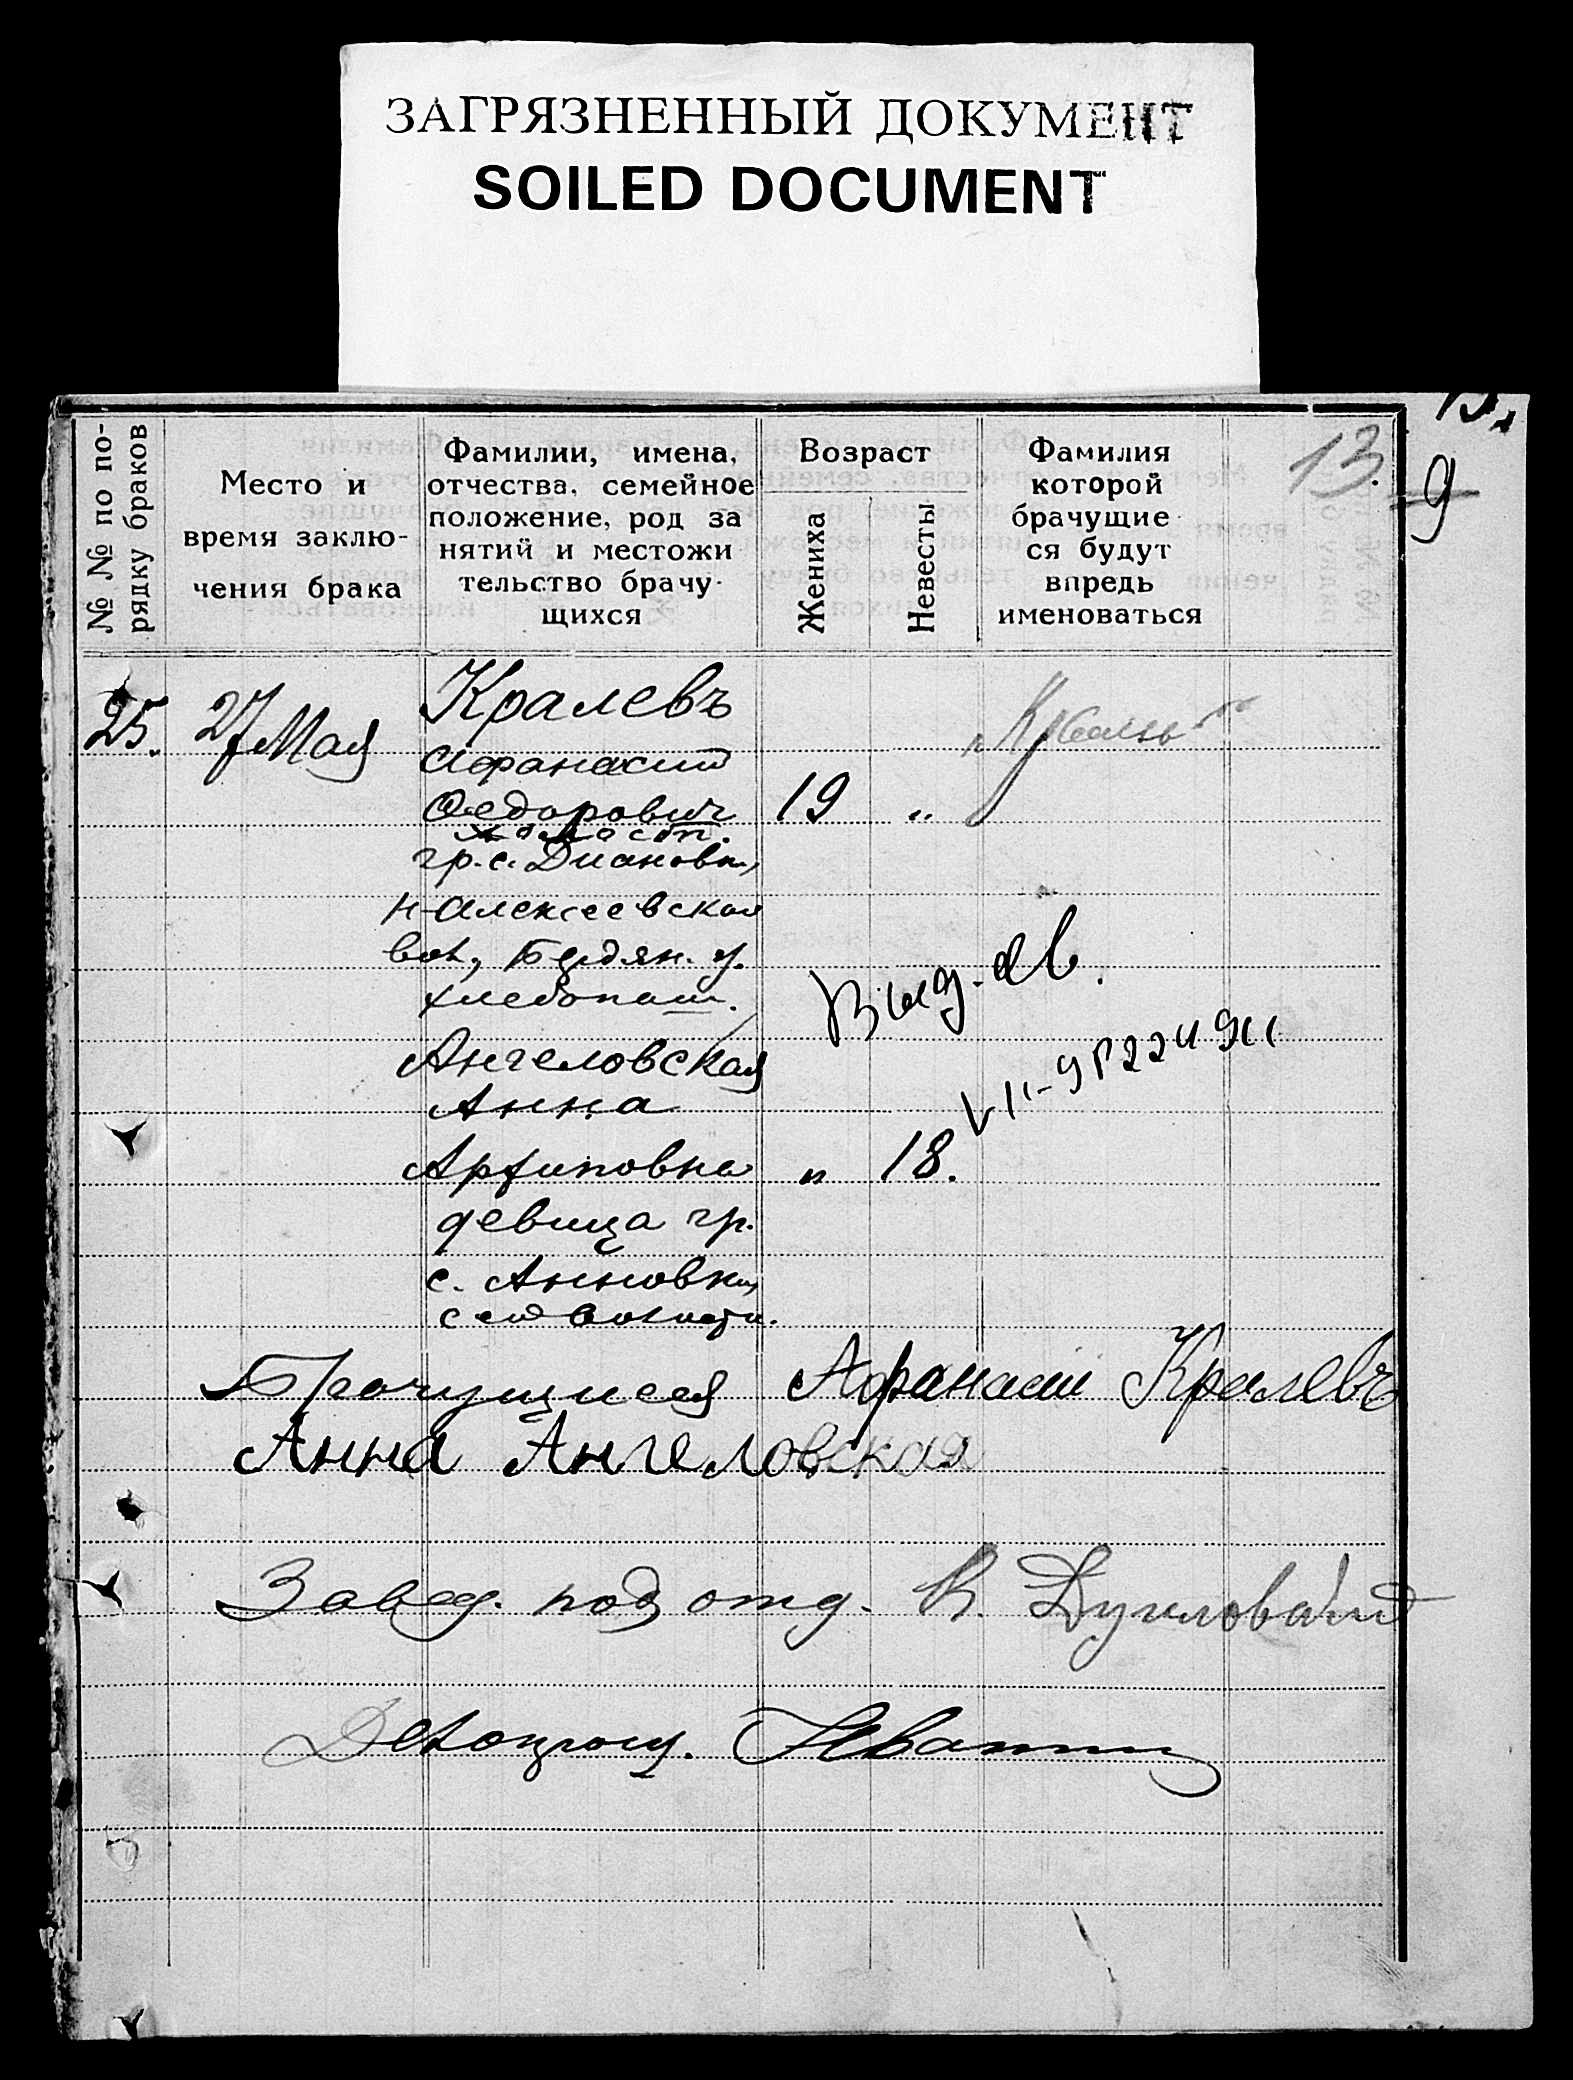 ЗАГРЯЗНЕННЫЙ ДОКУМЕНТ
SOILED DOCUMENT
13.
9
№ № по по-
рядку браков
Место и
время заклю-
чения брака
Фамилии, имена,
отчества, семейное
положение, род за
нятий и местожи
тельство брачу-
щихся
Возраст
Жениха
Невесты
Фамилия
которой
брачущие
ся будут
впредь
именоваться
25. 27 Мая
Кралевъ
Афанасий
Федорович 19 "
холост.
гр. с. Диановки,
Н-Алексеевская
вол., Бердян. у.
хлебопаш.
Ангеловская
Анна
Архиповна " 18.
девица гр.
с. Анновки,
сей волости.
Выд.
Брачущиеся Афанасий Кралевъ
Анна Ангеловская
Завед. подотд. К.
Делопроизв.